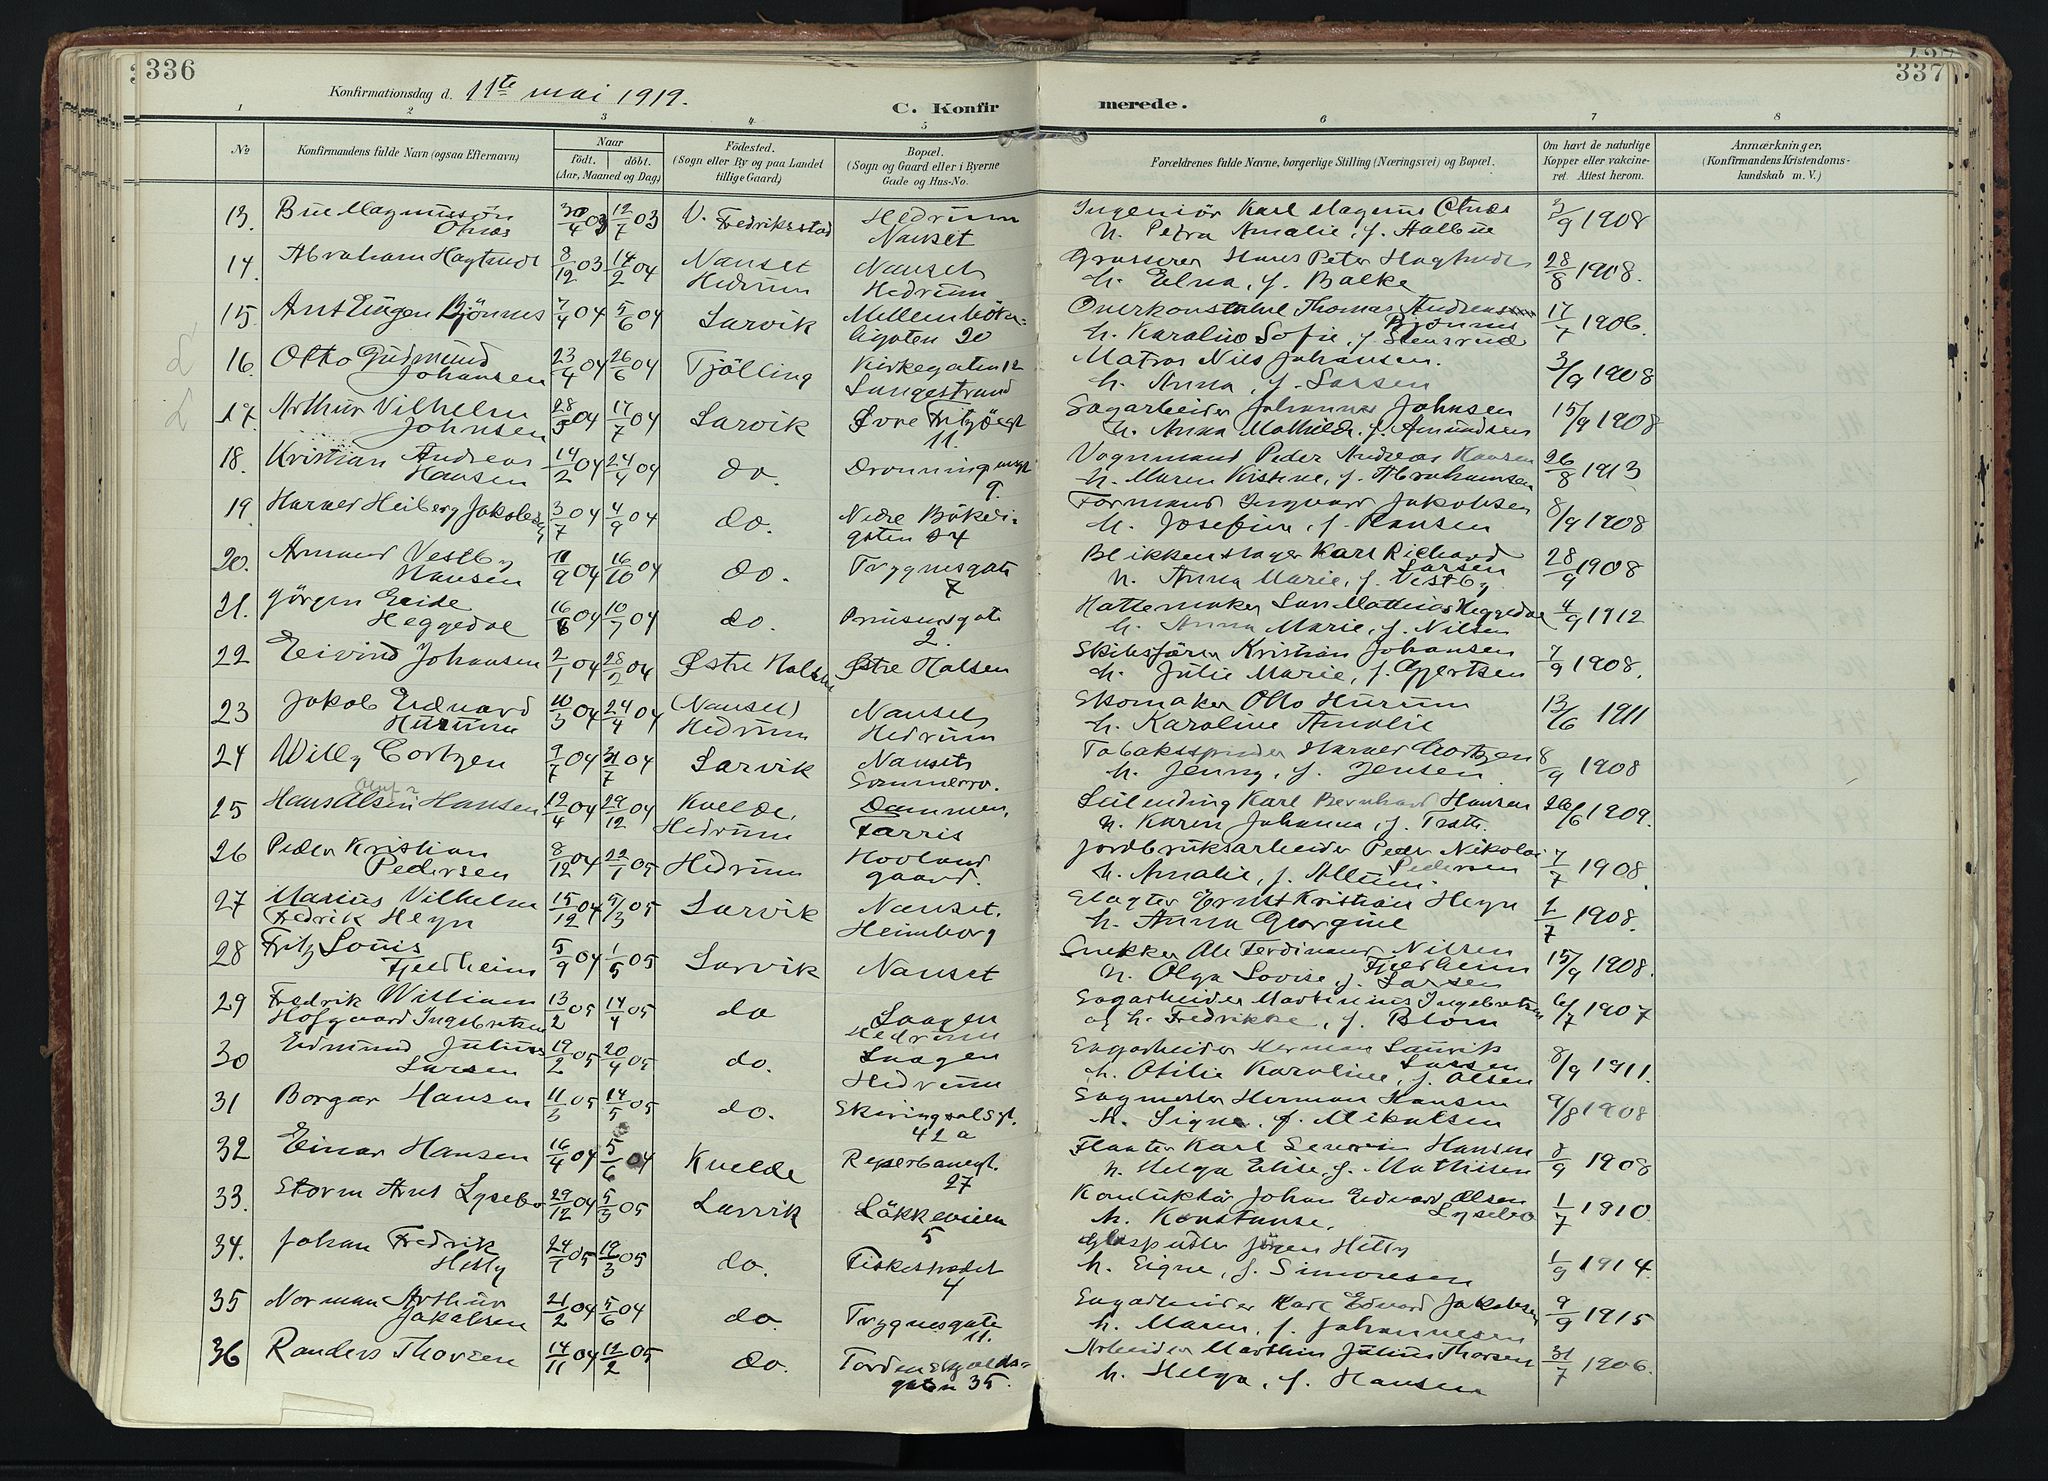 336
337
Konfirmationsdag d. 11te mai 1919.
C. Konfir
merede.
1 2 3 4 5 6 7 8
No
Konfirmandens fulde Navn (ogsaa Efternavn)
Naar
födt. döbt.
(Aar, Maaned og Dag)
Födested.
(Sogn eller By og paa Landet
tillige Gaard)
Bopæl.
(Sogn og Gaard eller i Byerne
Gade og Hus-No.
Forældrenes fulde Navne, borgerlige Stilling (Næringsvei) og Bopæl.
Om havt de naturlige
Kopper eller vakcine-
ret. Attest herom.
Anmærkninger.
(Konfirmandens Kristendoms-
kundskab m. V.)
13. 30/4 03 12/7 03 V. Fredriksstad Hedrum Ingeniör Karl Magnus 3/9 1908
Nanset h. Petra Amalie, f.
14. Abraham 8/12 03 14/2 04 Nanset Nanset Grosserer Hans Peter 28/8 1908.
Hedrum Hedrum h. Elna, f. Balke
15. Bjönnes 7/4 04 5/6 04 Larvik Thomas 17/7 1906.
20 h. Sofie, f. Bjönnes
16. Otto Gudmund 23/4 04 26/6 04 Tjölling Kirkegaten 12 Matros Nils Johansen. 3/9 1908
Johansen Langestrand h. Anna, f. Larsen
17. Arthur Vilhelm 04 17/7 04 Larvik Øvre Johannes Johnsen 15/9 1908
Johnsen 11. h. Anna Mathilde, f. Amundsen
18. Kristian Andreas 14/2 04 24/4 04 do. Vognmand Peder Andreas Hansen 26/8 1913
Hansen 9. h. Maren Kristine, f. Abrahamsen
19. Heiberg Jakobsen 3/7 04 4/9 04 do. Nedre Formand Ingvard Jakobsen 8/9 1908
h. Josefine, f. Hansen
20. Vestby 11/9 04 16/10 04 do. Trygvesgate Blikkenslager Karl Richard 28/9 1908
Hansen 7 h. Anna Marie, f. Vestby Larsen
21. Jörgen Eide 16/6 04 10/7 04 do. Prinsensgate Hattemaker Lars Mathias Heggedal 4/9 1912
Heggedal 2. h. Anna Marie, f. Nilsen
22 Eivind Johansen 2/1 04 28/2 04 Østre Halsen Østre Halsen Kristian Johansen 7/9 1908.
h. Julie Marie, f. Gjertsen
23 Jakob Edvard 10/3 04 24/4 04 (Nanset) Nanset Skomaker Otto Hurum 13/6 1911
Hurum Hedrum Hedrum h. Karoline Amalie
24 Willy Cortzen 9/7 04 31/7 04 Larvik Nanset Harald Cortzen 8/9 1908
Sommerro. h. Jenny, f. Jensen
25 Hans Hansen 12/4 04 29/12 04 Kvelde, Dammen, Leilending Karl Bernhard Hansen 26/6 1909.
Hedrum Farris h. Karen Johanna, f.
26 Peder Kristian 8/12 04 22/1 05 Hedrum Hovland Jordbruksarbeider Peder Nikolai 7/7 1908.
Pedersen gaard. h. Amalie, f. Allum. Pedersen
27 Marius Vilhelm 15/12 04 5/3 05 Larvik Nanset. Slagter Ernst Kristian Heyn 1/7 1908.
Fredrik Heyn Heimborg h. Anna Georgine
28 Fritz Louis 5/9 04 1/5 05 Larvik Nanset Snekker Ole Ferdinand Nilsen 15/9 1908.
Fjeldheim h. Olga Lovise, f. Larsen Fjeldheim
29 Fredrik William 13/2 05 14/4 05 do Laagen Sagarbeider Martinius Ingebretsen 6/7 1907
Hofgaard Ingebretsen Hedrum og h. Fredrikke, f. Blom
30 Edmund Julius 19/2 05 20/4 05 do. Laagen Sagarbeider Herman Laurits 8/9 1911.
Larsen Hedrum h. Otilie Karoline, f. Olsen Larsen
31 Borgar Hansen 11/3 05 14/5 05 do. Skiringsalsgt. Sagmester Herman Hansen 9/8 1908
42 a h. Signe, f. Mikalsen
32 Einar Hansen 16/4 04 5/6 04 Kvelde Reperbanegt. Karl Severin Hansen 8/9 1908
27 h. Helga Elise, f. Mathisen
33. Storm Arnt Lysebo 29/12 04 5/3 05 Larvik Lökkeveien Konduktör Johan Edvard Olsen 1/7 1910.
5 h. Konstanse. Lysebo
34. Johan Fredrik 24/1 05 19/3 05 do. Fiskestrædet Jörgen 1/9 1914.
4 h. Signe, f. Simonsen
35 Norman Arthur 21/2 04 5/6 04 do. Trygvesgate Sagarbeider Karl Edvard Jakobsen 9/9 1915
Jakobsen 11. h. Maren, f. Johannesen
36 Randers Thorsen 14/11 04 12/2 05 do. Tordenskjolds- Arbeider Marthin Julius Thorsen 31/7 1906.
gaten 35. h. Helga, f. Hansen